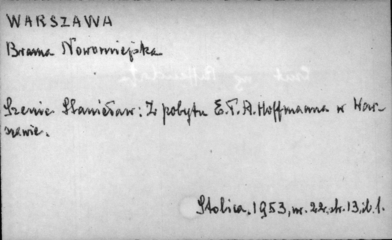 WARSZAWA
Brama Nowomiejska
Szenic Stanisław: Z pobytu E.T.A. Hoffmanna w War-
szawie.
Stolica, 1953, nr. 22, str. 13, il. 1.